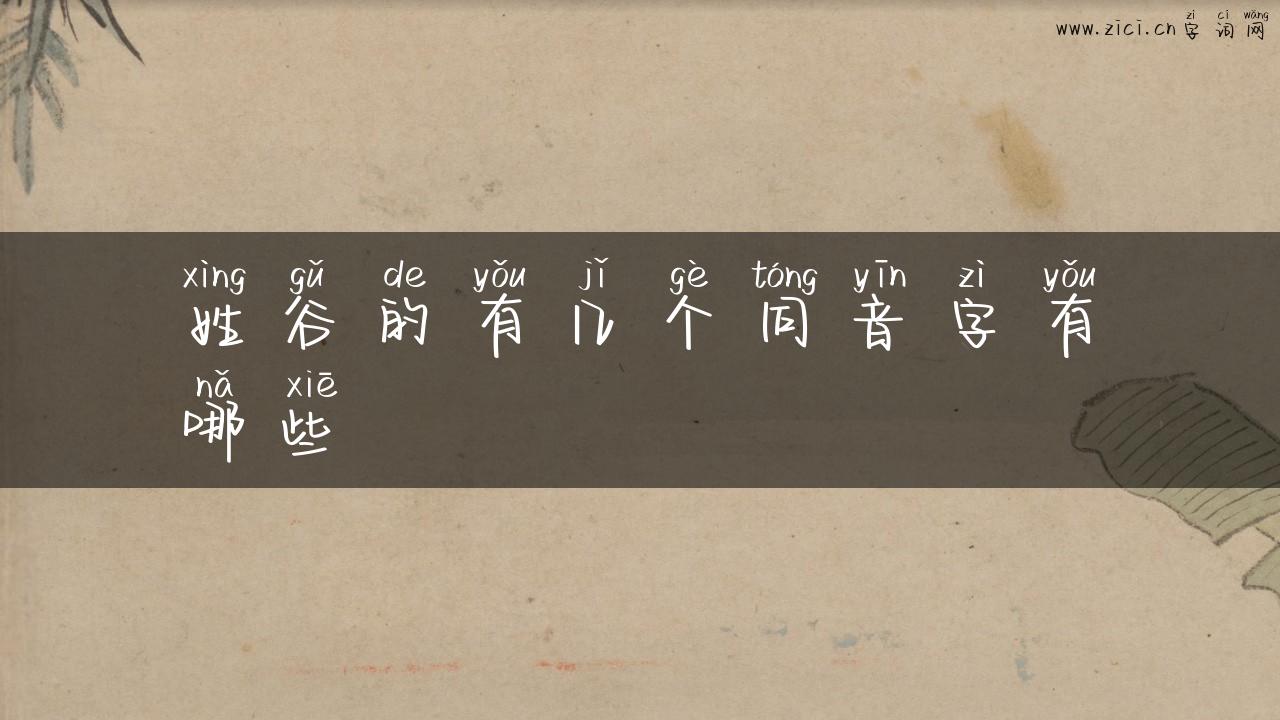 zì cí wǎng
www.zici.cn 字词网
xìng gǔ de yǒu jǐ gè tóng yīn zì yǒu
姓谷的有几个同音字有
nǎ xiē
哪些